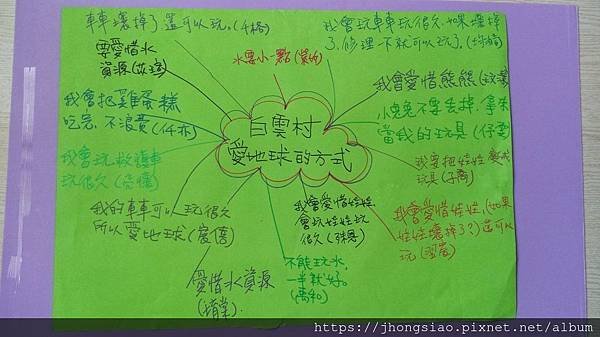 白雲村
愛地球的方式
車車壞掉了還可以玩。(千格)
我會玩車車玩很久,如果壞掉
了,修理一下就可以玩了。
水要小一點
要愛惜水
資源
我會愛惜熊熊
我會把雞蛋糕
吃完,不浪費
小兔兔不要丟掉,拿來
當我的玩具
我會玩救護車
玩很久
我要把娃娃變成
玩具
我的車車可以玩很久
所以愛地球
我會愛惜娃娃,
會玩娃娃玩
很久
我會愛惜娃娃,(如果
娃娃壞掉了?)還可以
玩
愛惜水資源
不能玩水,
一半就好。
https://jhongsiao.pixnet.net/album